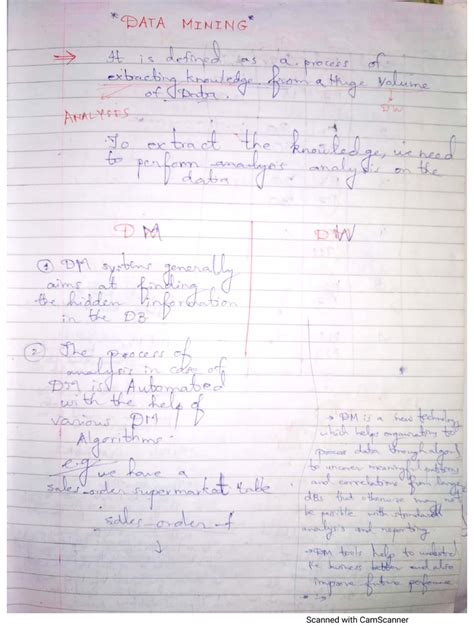 * DATA MINING *
⇒ It is defined as a process of
extracting knowledge from a Huge Volume
of Data.
DW
ANALYSES
To extract the knowledge, we need
to perform analysis on the
data
DM
DW
① DM systems generally
aims at finding
the hidden information
in the DB
② The process of
analysis in case of
DM is Automated
with the help of
various DM
Algorithms.
e.g we have a
sales-order supermarket table
sales-order-f
→ DM is a new technology
which helps organisations to
process data through algorit
to uncover meaningful patterns
and correlations from large
dBs that otherwise may not
be possible with standard
analysis and reporting
→ DM tools help to understand
the business better and also
improve future performance
Scanned with CamScanner